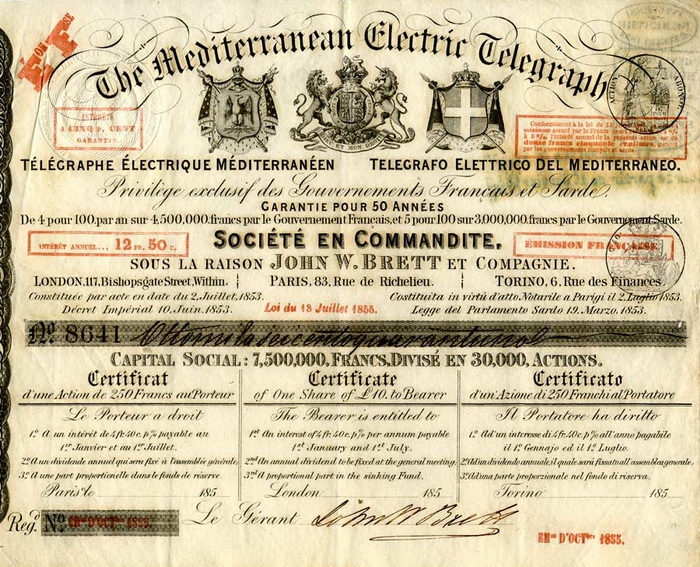 The Mediterranean Electric Telegraph
INTÉRÊTS
A CINQ P. CENT
GARANTIE.
TÉLÉGRAPHE ÉLECTRIQUE MÉDITERRANÉEN
TELEGRAFO ELETTRICO DEL MEDITERRANEO.
Privilége exclusif des Gouvernements Français et Sarde
GARANTIE POUR 50 ANNÉES
De 4 pour 100, par an sur 4,500,000, francs par le Gouvernement Français, et 5 pour 100 sur 3,000,000, francs par le Gouvernement Sarde.
INTÉRÊT ANNUEL... 12 FR. 50 C.
SOCIÉTÉ EN COMMANDITE,
ÉMISSION FRANÇAISE
SOUS LA RAISON JOHN W. BRETT ET COMPAGNIE.
LONDON, 117, Bishopsgate Street, Within.
PARIS, 83, Rue de Richelieu.
TORINO, 6, Rue des Finances
Constituée par acte en date du 2, Juillet, 1853.
Costituita in virtù d'atto Notarile a Parigi il 2, Luglio 1853.
Décret Impérial 10, Juin, 1853.
Loi du 13 Juillet 1855.
Legge del Parlamento Sardo 19, Marzo, 1853.
No. 8641 Ottomila seicentoquarantuno
CAPITAL SOCIAL: 7,500,000, FRANCS, DIVISÉ EN 30,000, ACTIONS.
Certificat
d'une Action de 250 Francs au Porteur
Le Porteur a droit
1o. A un intérêt de 4 fr. 40 c. p% payable au
1er Janvier et au 1er Juillet.
2o. A un dividende annuel qui sera fixé à l'assemblée générale.
3o. A une part proportionnelle dans le fonds de réserve.
Paris le 185
Certificate
of One Share of £10. to Bearer
The Bearer is entitled to
1st. An interest of 4 fr. 40 c. p% per annum payable
1st January and 1st July.
2nd. An annual dividend to be fixed at the general meeting.
3rd. A proportional part in the sinking Fund.
London 185
Certificato
d'un' Azione di 250 Franchi al Portatore
Il Portatore ha diritto
1o. Ad un interesse di 4 fr. 40 c. p% all'anno pagabile
il 1o. Gennajo ed il 1o. Luglio.
2o. Ad un dividendo annuale, il quale sarà fissato all'assemblea generale.
3o. Ad una parte proporzionale nel fondo di riserva.
Torino 185
Regd. No.
Le Gérant John W Brett
EMon D'OCTbre 1855.